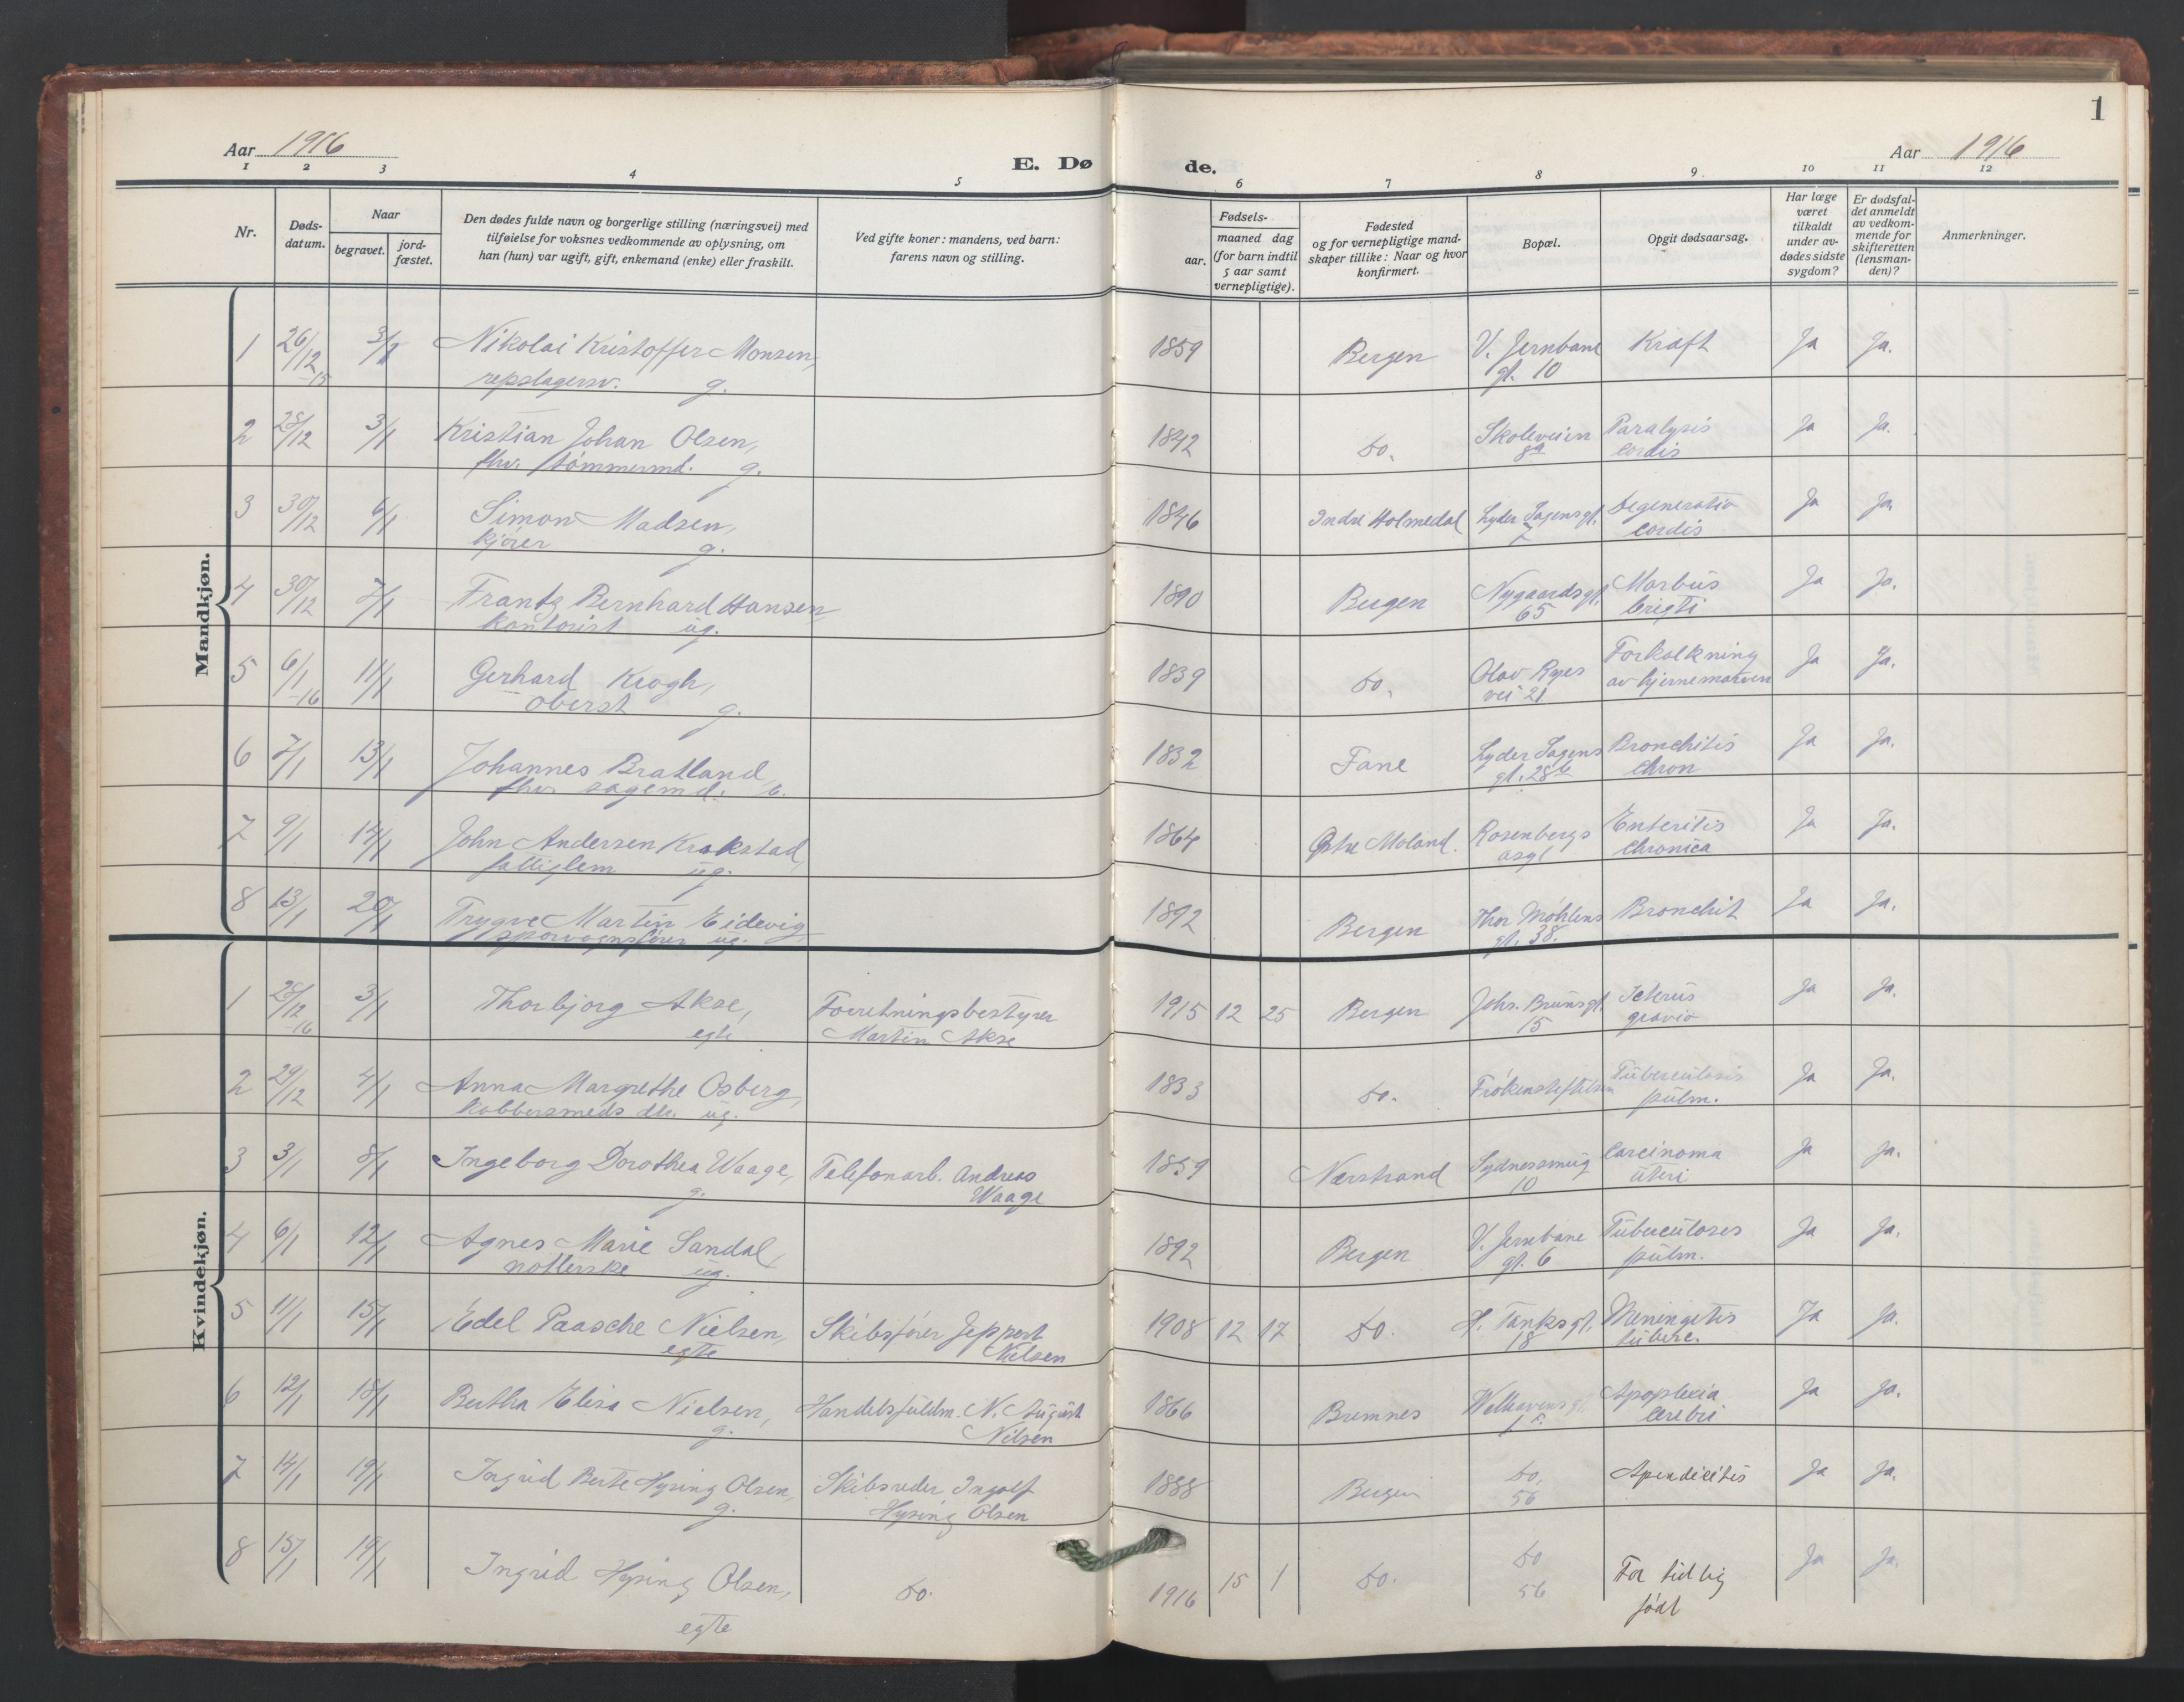 1
Aar 1916
E. Dø
de.
Aar 1916
1 2 3 4 5 6 7 8 9 10 11 12
Nr.
Døds-
datum.
Naar
begravet.
jord-
fæstet.
Den dødes fulde navn og borgerlige stilling (næringsvei) med
tilføielse for voksnes vedkommende av oplysning, om
han (hun) var ugift, gift, enkemand (enke) eller fraskilt.
Ved gifte koner: mandens, ved barn:
farens navn og stilling.
Fødsels-
aar.
maaned dag
(for barn indtil
5 aar samt
vernepligtige).
Fødested
og for vernepligtige mand-
skaper tillike: Naar og hvor
konfirmert.
Bopæl.
Opgit dødsaarsag.
Har læge
været
tilkaldt
under av-
dødes sidste
sygdom?
Er dødsfal-
det anmeldt
av vedkom-
mende for
skifteretten
(lensman-
den)?
Anmerkninger.
Mandkjøn.
1 26/12 3/1 Nikolai Kristoffer Monsen, 1859 Bergen V. Jernbane Kræft Ja Ja.
-15 repslagersv. g. gt. 10
2 28/12 3/1 Kristian Johan Olsen, 1842 Do. Skoleveien Paralysis Ja Ja.
fhv. tømmermd. g. 8a cordis
3 30/12 6/1 Simon Madsen, 1846 Indre Holmedal Lyder Sagensgt. Degeneratio Ja Ja.
kjører g. 7 cordis
4 30/12 7/1 Frantz Bernhard Hansen 1890 Bergen Nygaardsgt. Morbus Ja Ja.
kontorist ug. 65 brigti
5 6/1 11/1 Gerhard Krogh, 1839 Do. Olav Ryes Forkalkning Ja Ja.
-16 oberst g. vei 21 av hjernemarven
6 7/1 13/1 Johannes Bratland 1832 Fane Lyder Sagens Bronchitis Ja Ja.
fhv. sagemd. e. gt. 28b chron
7 9/1 14/1 John Andersen Krokstad, 1864 Østre Moland. Rosenbergs Enteritis Ja Ja.
fattiglem ug. asyl chronica
8 13/1 20/1 Trygve Martin Eidevig 1892 Bergen Thor Møhlens Bronchit Ja Ja.
sporvognsfører ug. gt. 38.
Kvindekjøn.
1 28/12 3/1 Thorbjørg Akse, Forretningsbestyrer 1915 12 25 Bergen Johs. Brunsgt. Icterus Ja Ja.
-16 egte Martin Akse 15 gravis
2 29/12 4/1 Anna Margrethe Osberg, 1833 Do. Frøkenstiftelsen Tuberculosis Ja Ja.
kobbersmeds dtr. ug. pulm.
3 3/1 8/1 Ingeborg Dorothea Waage, Telefonarb. Andreas 1859 Nærstrand Sydnessmug Carcinoma Ja Ja.
g. Waage 10 uteri
4 6/1 12/1 Agnes Marie Sandal, 1892 Bergen V. Jernbane Tuberculoses Ja Ja.
notterske ug. gt. 6 pulm.
5 11/1 15/1 Edel Paasche Nielsen, Skibsfører Jeppert 1908 12 17 Do. H. Tanksgt. Meningetis Ja Ja.
egte Nielsen 18 tuberc.
6 12/1 18/1 Bertha Elisa Nielsen, Handelsfuldm. N. August 1866 Bremnes Welhavensgt. Apoplexia Ja Ja.
g. Nilsen cerebri
7 14/1 19/1 Ingrid Berte Hysing Olsen, Skibsreder Ingolf 1888 Bergen Do. Apendicitis Ja Ja.
g. Hysing Olsen 56
8 15/1 19/1 Ingrid Hysing Olsen, Do. 1916 15 1 Do. Do For tidlig Ja Ja.
egte 56 født